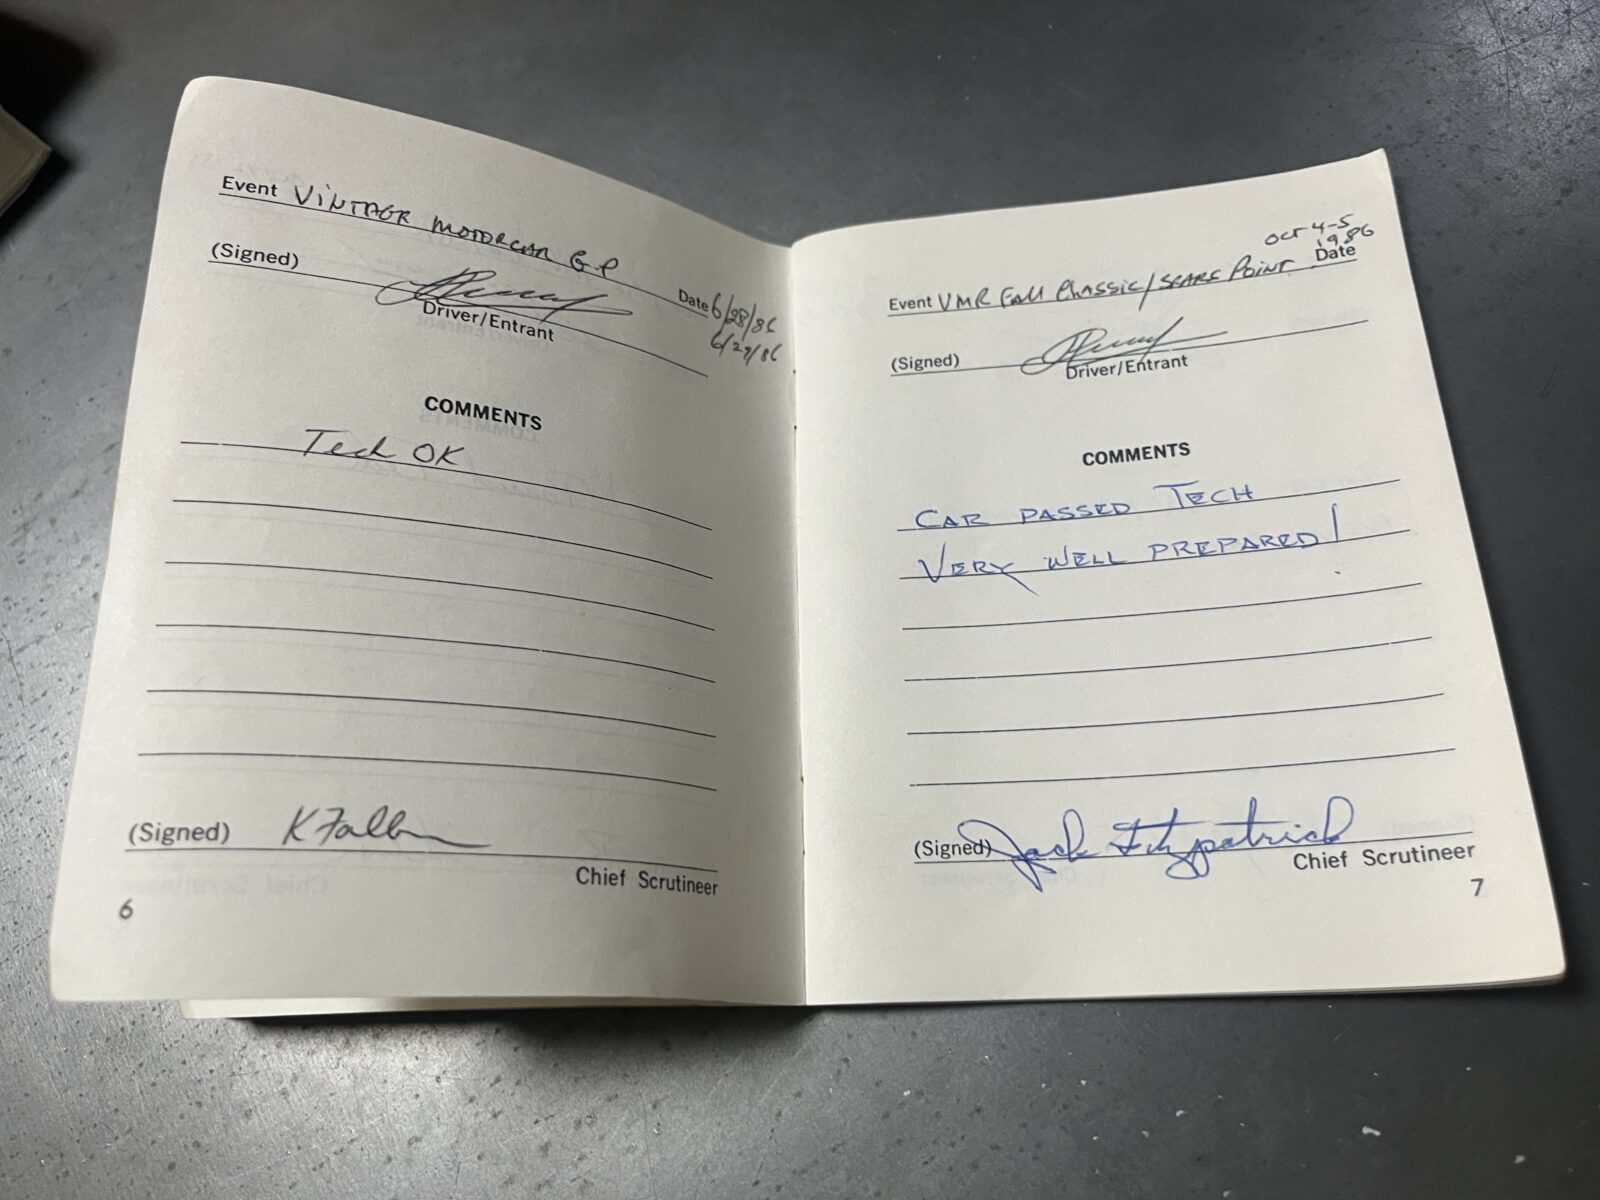 Event VINTAGE MOTORCAR G.P
Date 6/28/86
6/29/86
(Signed)
Driver/Entrant
COMMENTS
Tech OK
(Signed) K Fallon
Chief Scrutineer
6
Oct 4-5
1986
Event VMR Fall Classic/Sears Point Date
(Signed)
Driver/Entrant
COMMENTS
CAR PASSED TECH
VERY WELL PREPARED!
(Signed) Jack Fitzpatrick
Chief Scrutineer
7